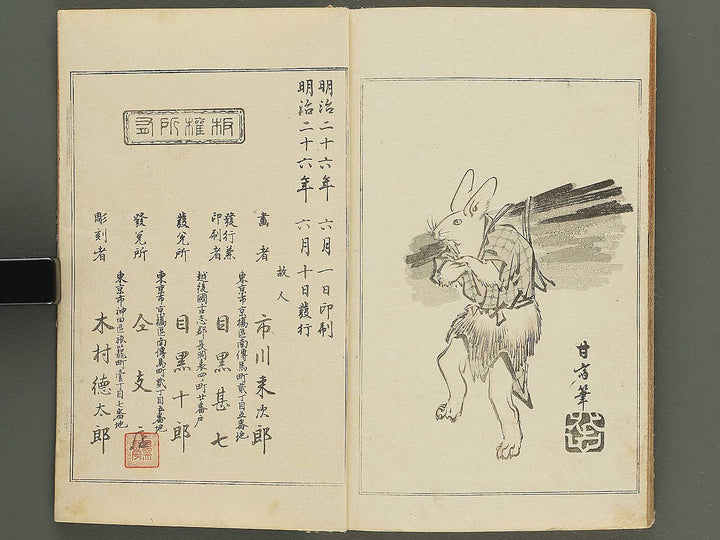 甘斎筆
明治二十六年 六月一日印刷
明治二十六年 六月十日發行
故人
畫者 市川来次郎
東京市京橋區南傳馬町貳丁目五番地
發行兼印刷者 目黒甚七
越後國古志郡長岡表四ノ町廿番戸
發兌所 目黒十郎
東京市京橋區南傳馬町貳丁目五番地
發兌所 仝支店
東京市神田區猿籠町壹丁目七番地
彫刻者 木村徳太郎
板権所有